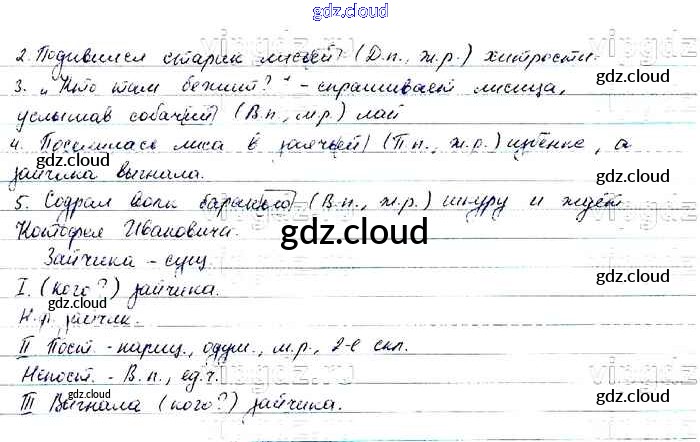 gdz.cloud
2. Подивился старик лисьей (Д.п., ж.р.) хитрости.
gdz.cloud
3. „Кто там бежит?“ - спрашивает лисица,
услышав собачий (В.п., м.р.) лай
gdz.cloud
4. Поселилась лиса в заячьей (П.п., ж.р.) избёнке, а
gdz.cloud
зайчика выгнала.
5. Содрал волк баранью (В.п., ж.р.) шкуру и ждёт
gdz.cloud
Котофея Ивановича.
gdz.cloud
Зайчика - сущ.
gdz.cloud
I. (кого?) зайчика.
Н.ф. зайчик.
II Пост. - нариц., одуш., м.р., 2-е скл.
vipgdz.ru
Непост. - В.п., ед.ч.
gdz.cloud
III Выгнала (кого?) зайчика.
gdz.cloud